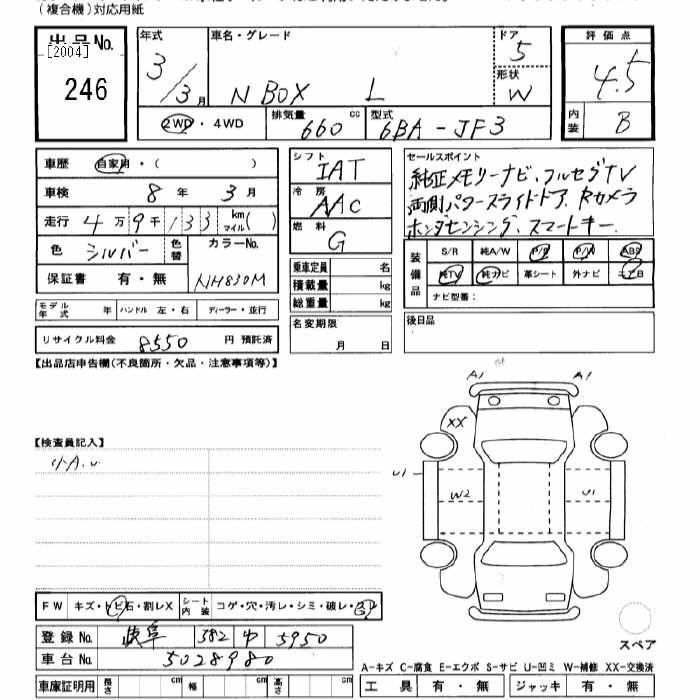 (複合機)対応用紙
出品No. [2004] 246
年式 3/3月
車名・グレード N BOX L
ドア 5
形状 W
評価点 4.5
内装 B
2WD・4WD
排気量 660 cc
型式 6BA-JF3
車歴 自家用・( )
車検 8年 3月
走行 4万9千133 km マイル( )
色 シルバー 色替
カラーNo. NH830M
保証書 有・無
シフト IAT
冷房 AAC
燃料 G
乗車定員 名
積載量 kg
総重量 kg
セールスポイント
純正メモリーナビ、フルセグTV
両側パワースライドドア、Rカメラ
ホンダセンシング、スマートキー、
装備品 S/R 純A/W P/S P/W ABS
純TV 純ナビ 革シート 外ナビ エアB
ナビ型番:
モデル年式 年 ハンドル 左・右 ディーラー・並行
名変期限 月 日
後日品
リサイクル料金 8550 円 預託済
【出品店申告欄(不良箇所・欠品・注意事項等)】
A1 A1
XX
【検査員記入】
U1 W2 U1
FW キズ・トビ石・割レX シート内装 コゲ・穴・汚レ・シミ・破レ・
登録No. 岐阜 382 ゆ 5950
車台No. 5028980
スペア
A-キズ C-腐食 E-エクボ S-サビ U-凹ミ W-補修 XX-交換済
車庫証明用 長さ cm 幅 cm 高さ cm
工具 有・無 ジャッキ 有・無